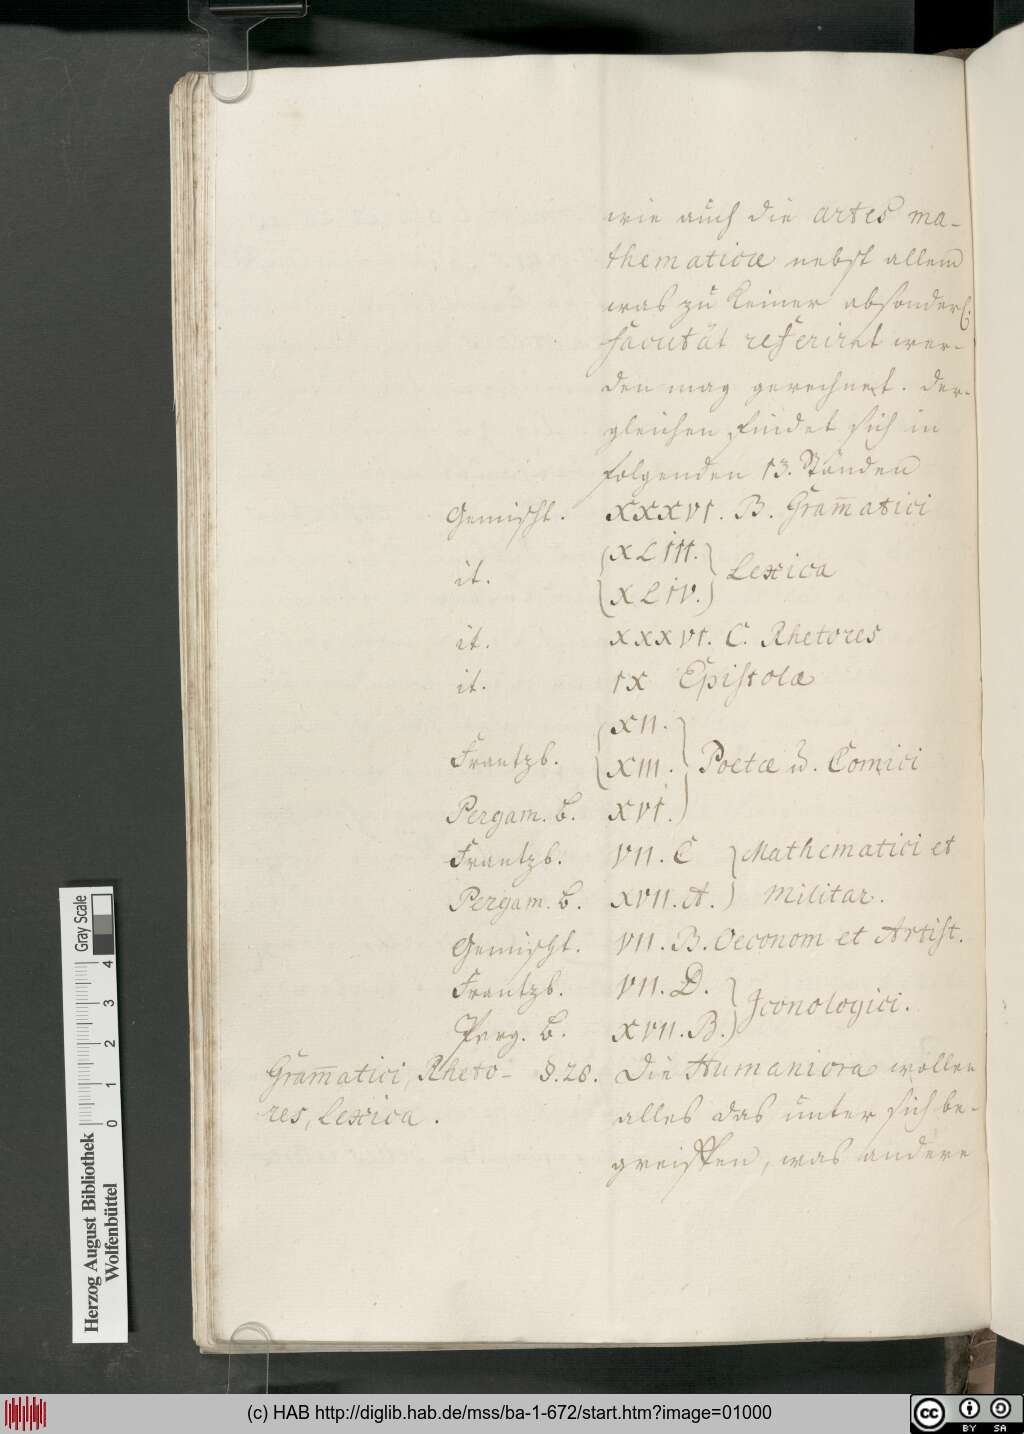 wie auch die artes ma-
thematicæ nebst allem
was zu keiner absonderl.
facultät referiret wer-
den mag gerechnet. der-
gleichen findet sich in
folgenden 13. Ständen
Gemischt. XXXVI. B. Gram̄atici
it. XLIII. XLIV. Lexica
it. XXXVI. C. Rhetores
it. IX Epistolæ
XII.
Frantzb. XIII. Poetæ u. Comici
Pergam. b. XVI.
Frantzb. VII. C Mathematici et
Pergam. b. XVII. A. Militar.
Gemischt. VII. B. Oeconom et Artist.
Frantzb. VII. D. Iconologici.
Perg. b. XVII. B.
Gram̄atici, Rheto- §. 28. Die Humaniora wollen
res, Lexica. alles das unter sich be-
greiffen, was andere
Gray Scale
0 1 2 3 4
Herzog August Bibliothek
Wolfenbüttel
(c) HAB http://diglib.hab.de/mss/ba-1-672/start.htm?image=01000
cc BY SA